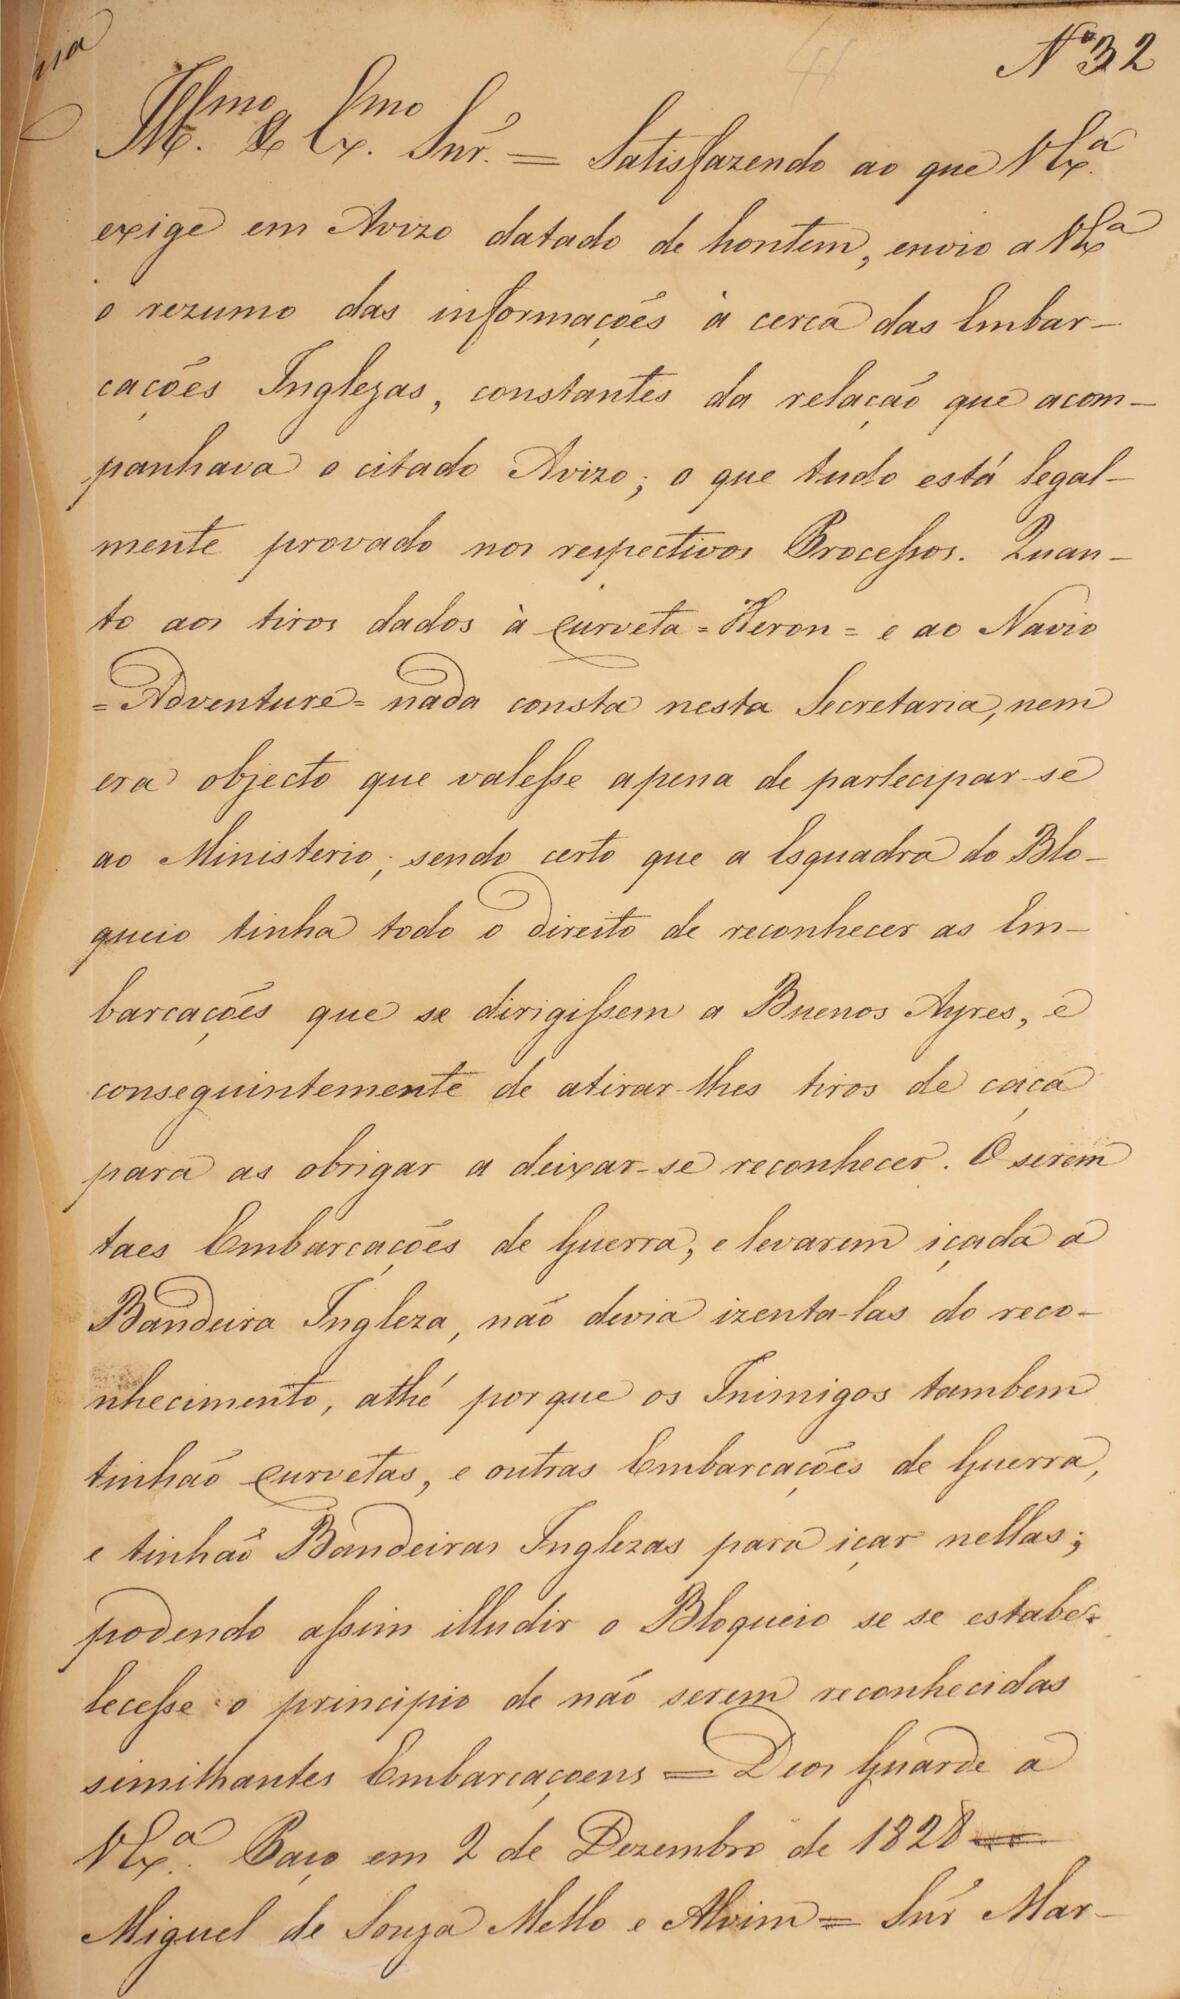 Nº 32
Illmo. & Exmo. Snr. = Satisfazendo ao que VExa.
exige em Avizo datado de hontem, envio a VExa
o rezumo das informações à cerca das Embar-
cações Inglezas, constantes da relação que acom-
panhava o citado Avizo; o que tudo está legal-
mente provado nos respectivos Processos. Quan-
to aos tiros dados à Curveta = Heron = e ao Navio
= Adventure = nada consta nesta Secretaria, nem
era objecto que valesse apena de partecipar-se
ao Ministerio; sendo certo que a Esquadra do Blo-
queio tinha todo o direito de reconhecer as Em-
barcações que se dirigissem a Buenos Ayres, e
conseguintemente de atirar-lhes tiros de caça
para as obrigar a deixar-se reconhecer. O serem
taes Embarcações de Guerra, e levarem içada a
Bandeira Ingleza, não devia izenta-las do reco-
nhecimento, athé porque os Inimigos tambem
tinhão Curvetas, e outras Embarcações de Guerra,
e tinhão Bandeiras Inglezas para içar nellas;
podendo assim illudir o Bloqueio se se estabe-
lecesse o principio de não serem reconhecidas
similhantes Embarcaçoens = Deos Guarde a
VExa. Paço em 2 de Dezembro de 1828 =
Miguel de Souza Mello e Alvim = Snr Mar-